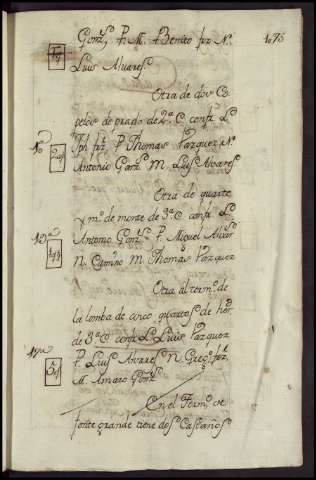 Gonz.s P. M. Benito frz N. 1075
Luis Alvares
Otra de dos Co
pelos de prado de 2.a C. confr. L.
Jph frz P. Thomas Vazquez N.
Antonio Garz.s M. Luis Alvares
Otra de quarto
y m.o de monte de 3.a C. confr. L.
Antonio Gonz.s P. Miguel Alvar.s
N. Camino M. Thomas Vazquez
Otra al term.o de
la lomba de cinco quartos de her.l
de 3.a C. confr. L. Luis Vazquez
P. Luis Alvares N. Greg.o frz
M. Amaro Gonz.s
En el Term.o de
fonte grande tiene dos Castaños